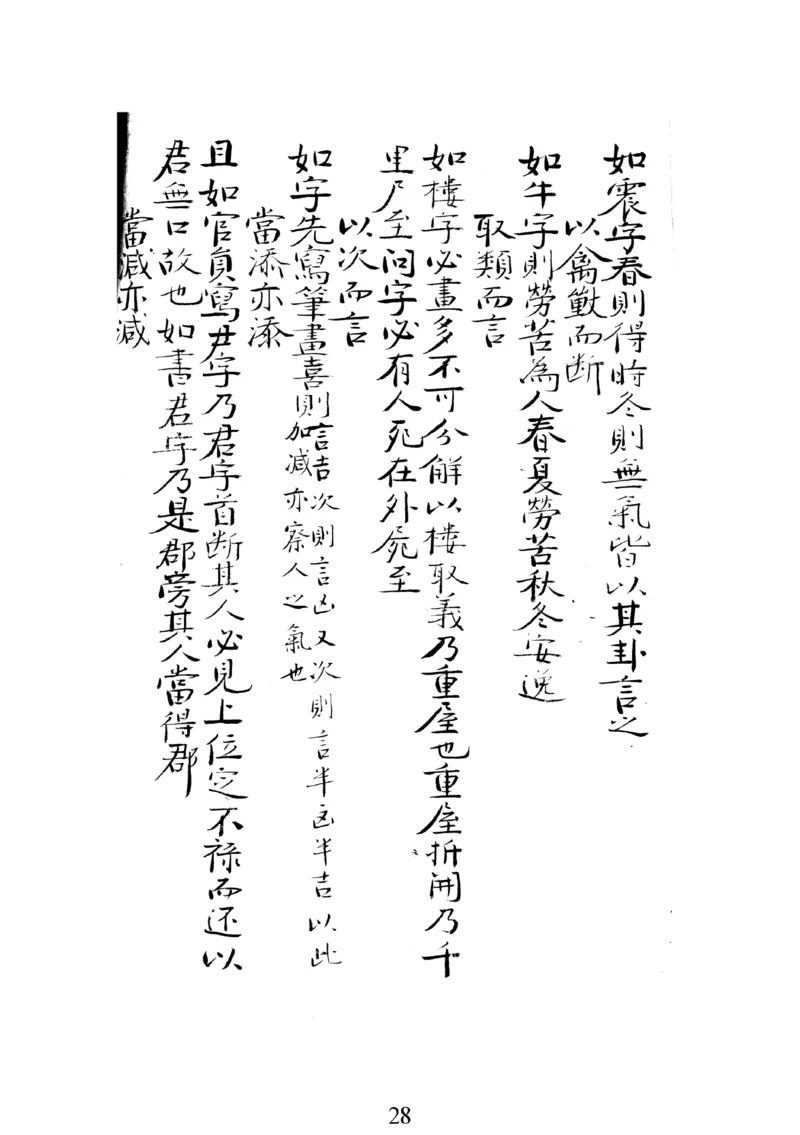 如震字春則得時冬則無氣皆以其卦言之
以禽獸而断
如牛字則勞苦為人春夏勞苦秋冬安逸
取類而言
如樓字必畫多不可分解以樓取義乃重屋也重屋拆開乃千
里尸至問字必有人死在外屍至
以次而言
如字先寫筆畫喜則言吉次則言凶又次則言半凶半吉以此
加減亦察人之氣也
當添亦添
且如官員寫尹字乃君字首断其人必見上位定不祿而还以
君無口故也如書君字乃是郡旁其人當得郡
當減亦減
28